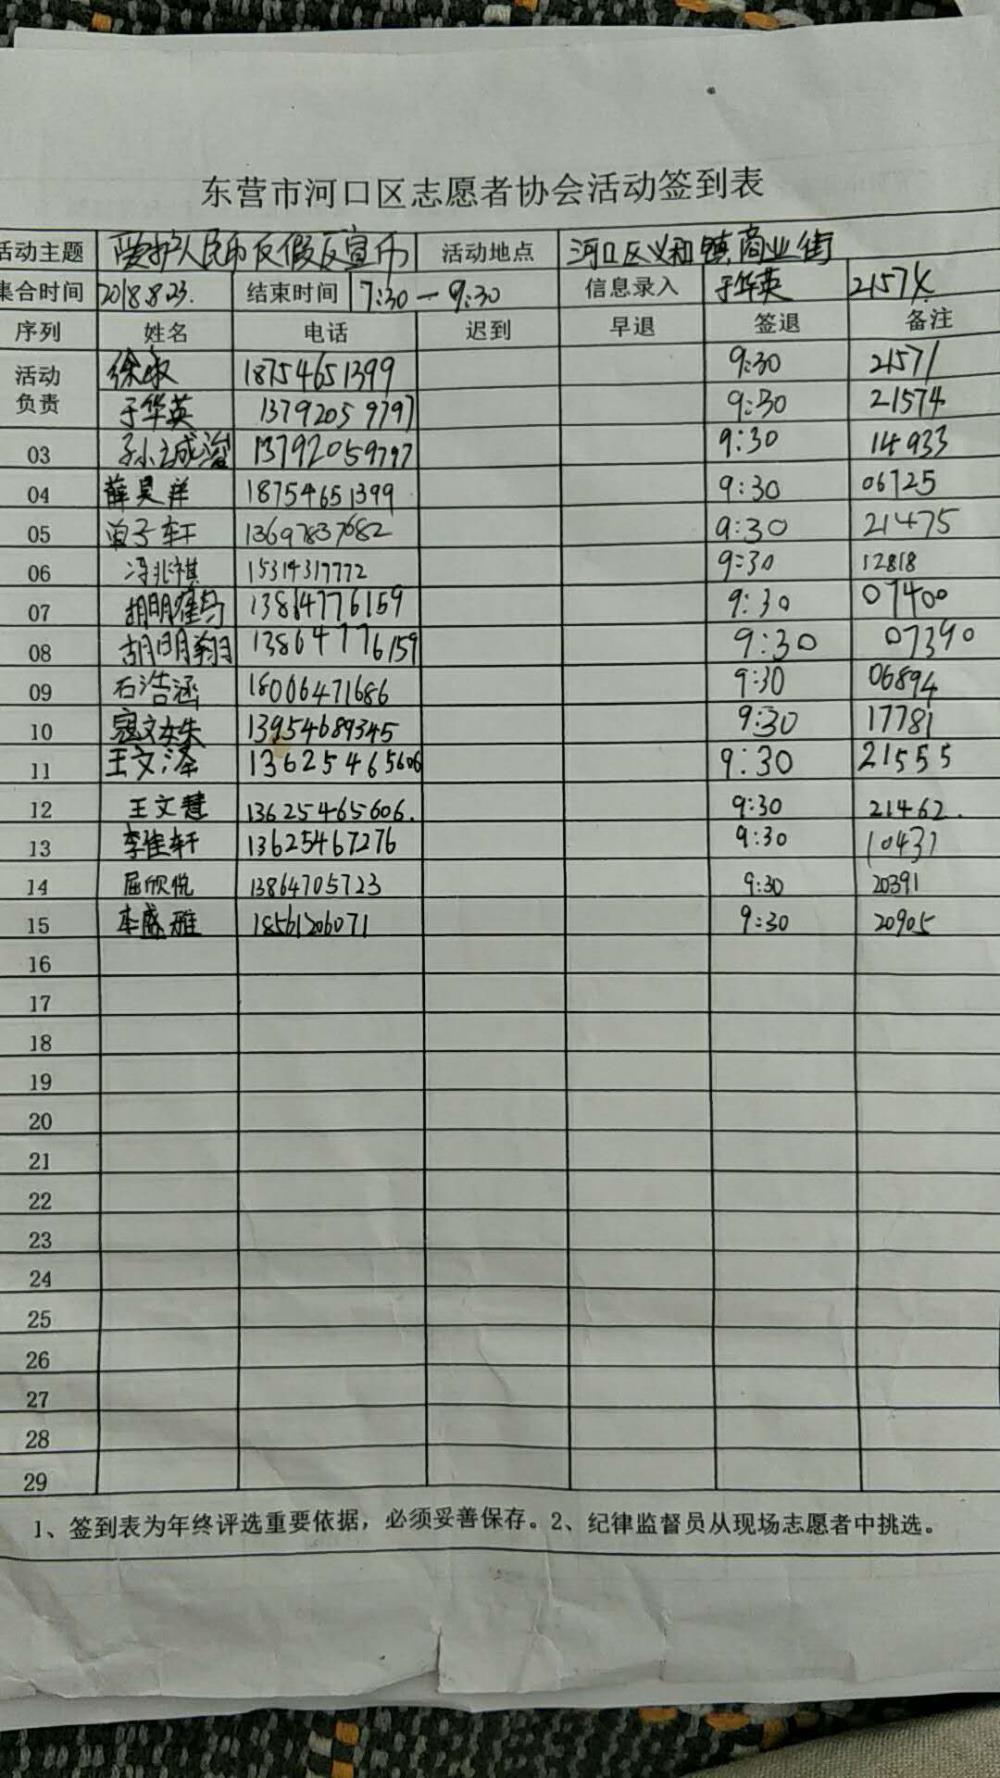 东营市河口区志愿者协会活动签到表
活动主题 爱护人民币反假反宣币 活动地点 河口区义和镇商业街
集合时间 2018.8.23. 结束时间 7:30-9:30 信息录入 于华英 21574
序列 姓名 电话 迟到 早退 签退 备注
活动负责 徐 18754651399 9:30 21571
于华英 13792059797 9:30 21574
03 孙 13792059797 9:30 14933
04 薛昊祥 18754651399 9:30 06725
05 子轩 13697837682 9:30 21475
06 冯兆祺 15314317772 9:30 12818
07 胡明 13864776159 9:30 07400
08 胡明翔 13864776159 9:30 07390
09 石浩涵 18006471686 9:30 06894
10 寇文姝 13954689345 9:30 17781
11 王文泽 13625465606 9:30 21555
12 王文慧 13625465606. 9:30 21462.
13 李佳轩 13625467276 9:30 10431
14 屈欣悦 13864705723 9:30 20391
15 李盛雅 18561206071 9:30 20905
16
17
18
19
20
21
22
23
24
25
26
27
28
29
1、签到表为年终评选重要依据，必须妥善保存。2、纪律监督员从现场志愿者中挑选。